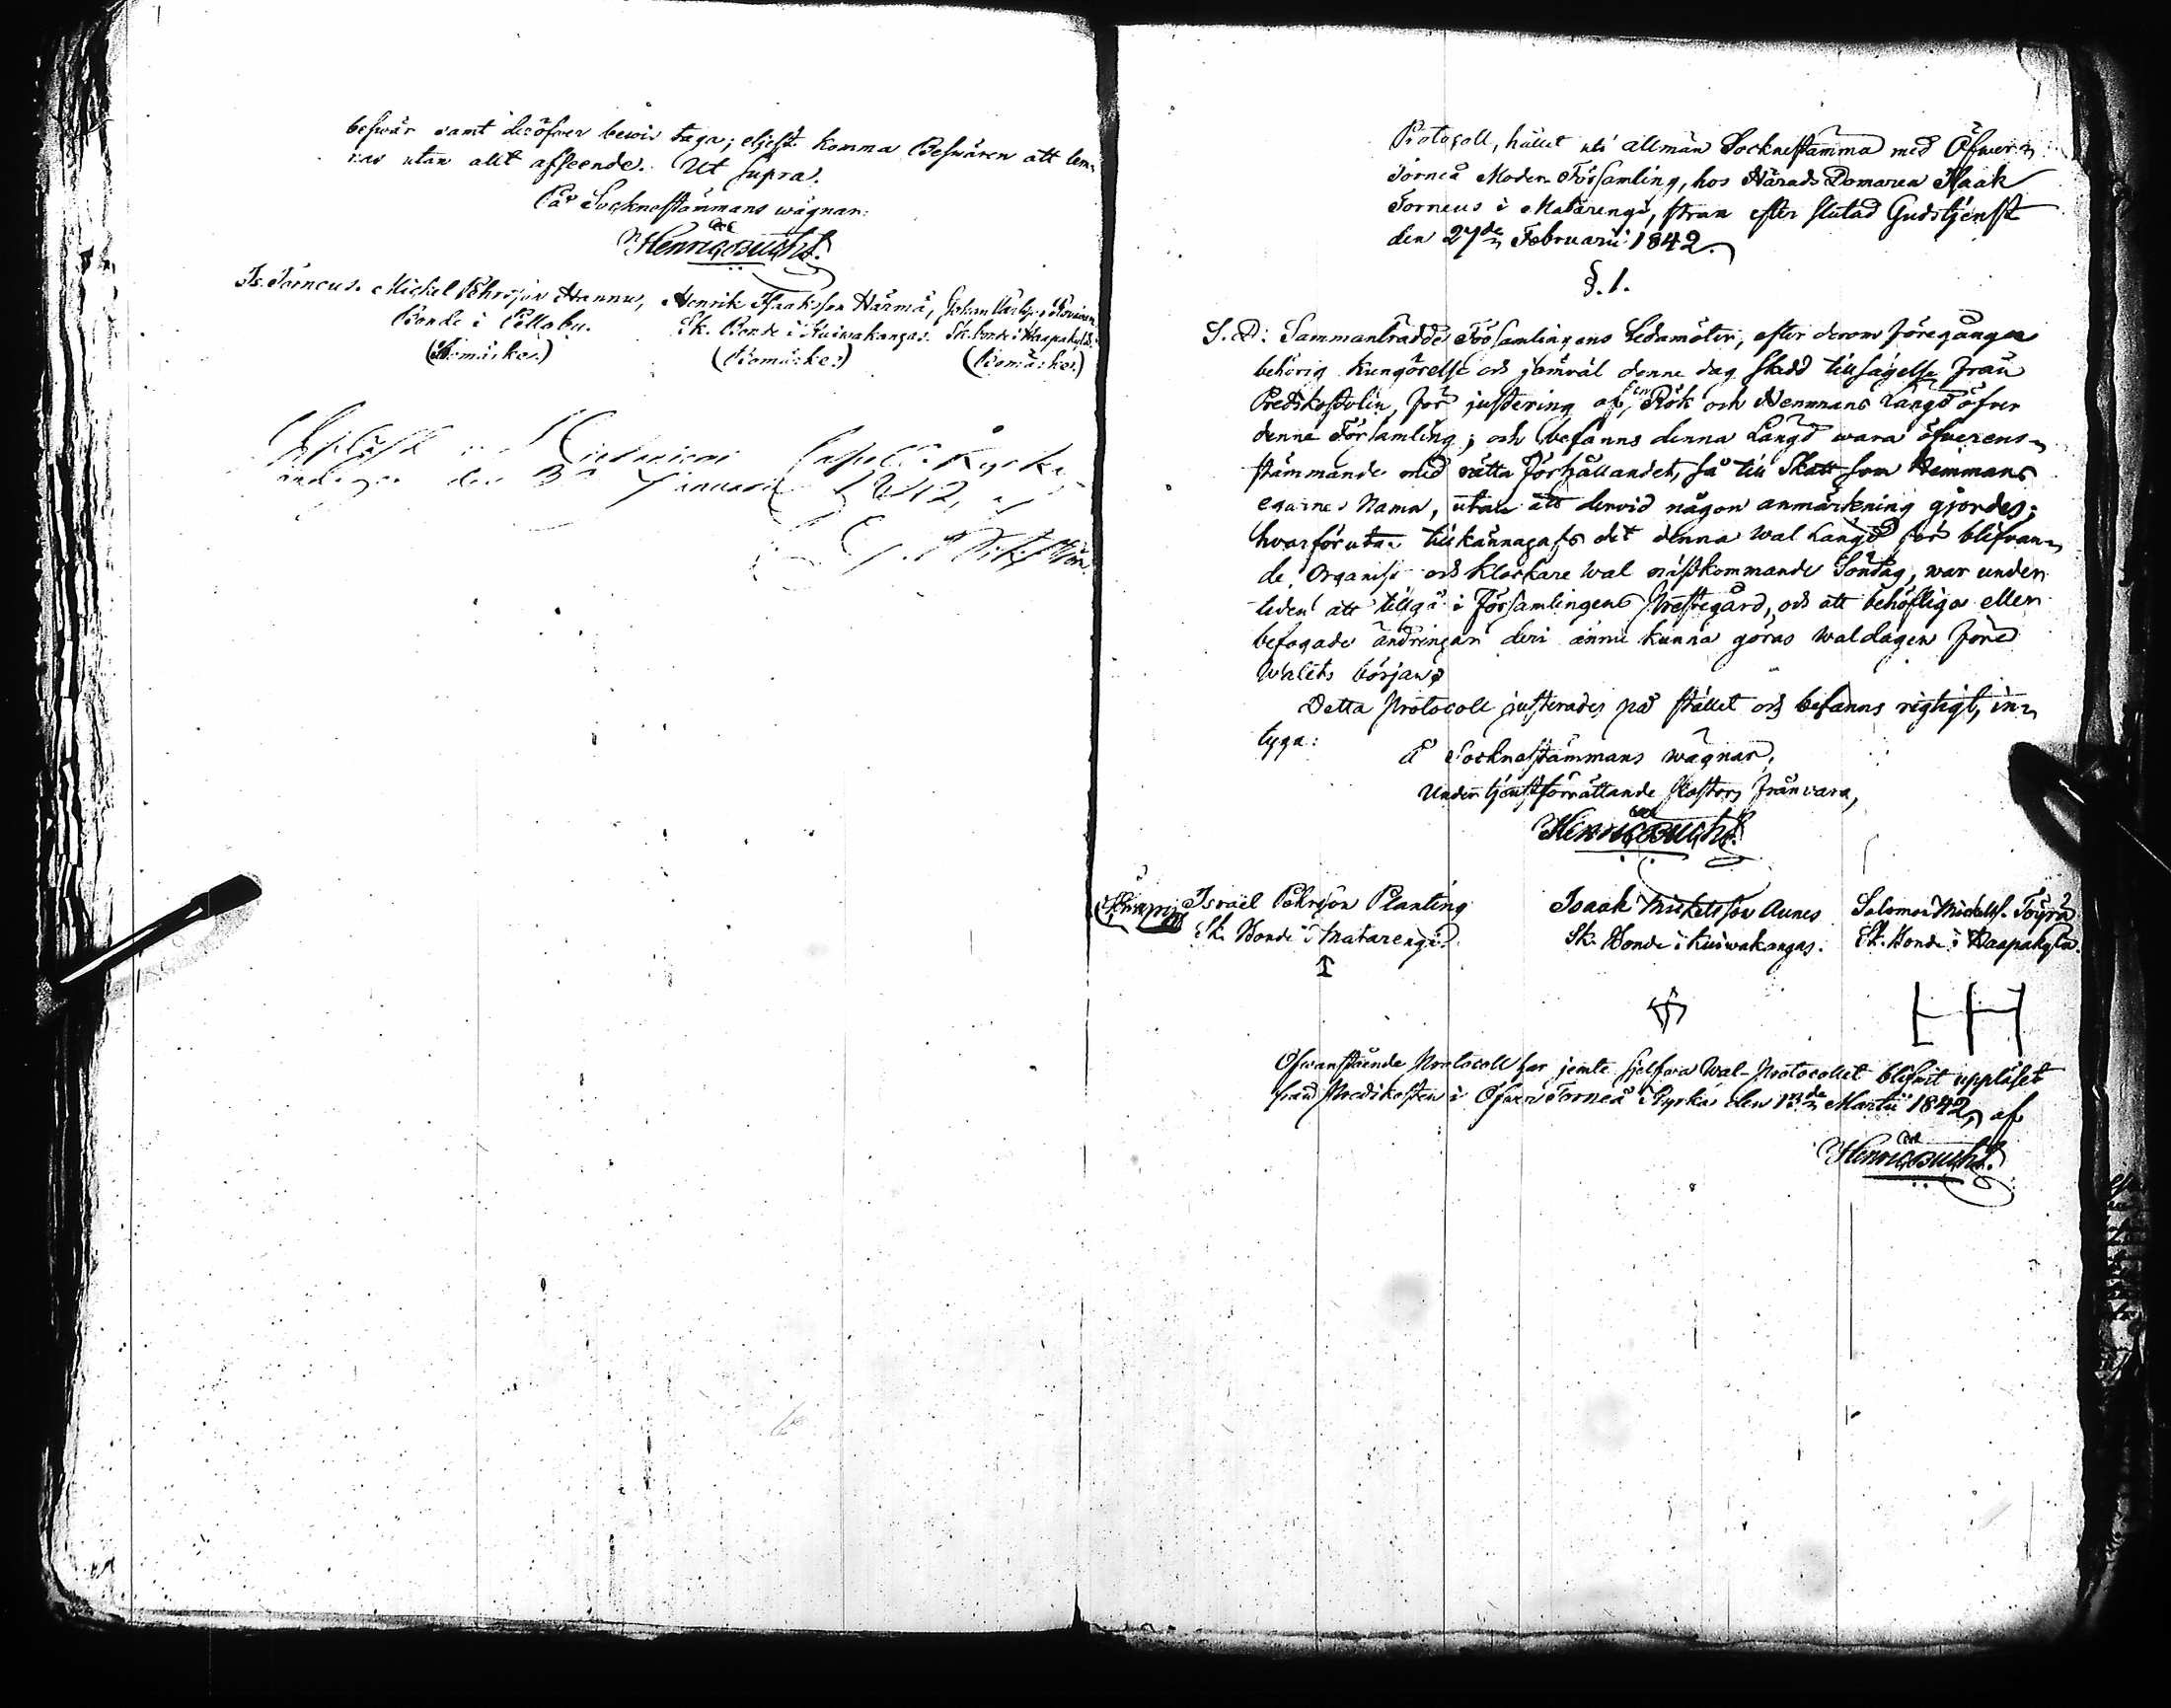 beswär samt deröfver bewis taga; eljest komma Beswären att lem-
nas utan allt afseende. Ut supra.
På Socknestämmans wägnar:
Henric Bucht.
Is. Torneus. Mickel Pehrsson Hannu, Henrik Isaksson Härmä, Johan
Bonde i Pello by. Sk. Bonde i Kuiwakangas. Sk. bonde i Haapakylä.
(Bomärke.) (Bomärke.) (Bomärke.)
Uppläst i Capell Kyrka
den 3 Januarii 1842, af
Protocoll, hållet uti allmän Socknestämma med Öfwer
Torneå Moder-Församling, hos Härads Domaren Isaak
Torneus i Matarengi, strax efter slutad Gudstjenst
den 27de Februarii 1842.
§. 1.
S. D: Sammanträdde Församlingens Ledamöter, efter derom föregången
behörig kungörelse och jämväl denne dag skedd tillsägelse från
Predikostolen, för justering af en Rök och Hemmans Längd öfver
denne Församling; och befanns denna Längd wara öfverens-
stämmande med rätta förhållandet, så till Skatt som Hemmans
egarnes Namn, utan att dervid någon anmärkning gjordes;
hvarförutan tillkännagafs det denna Wal Längd för blifvan-
de Organist och Klockare wal nästkommande Söndag, war under
tiden att tillgå i Församlingens Prestegård, och att behöfliga eller
befogade ändringar deri ännu kunna göras waldagen före
Walets början.
Detta Protocoll justerades på stället och befanns rigtigt, in-
tyga:
På Socknestämmans wägnar,
Under tjenstförrättande Pastors frånvaro,
Henric Bucht.
Israel Pehrsson Planting Isaak Mickelsson Aunes Salomon Mickelss. Töyrä
Sk. Bonde i Matarengi. Sk. Bonde i Kuiwakangas. Sk. Bonde i Haapakylä.
Ofwanstående Protocoll har jemte sjelfva Wal-Protocollet blifvit uppläset
från Predikstolen i Öfwer Torneå Kyrka den 13de Martii 1842, af
Henric Bucht.